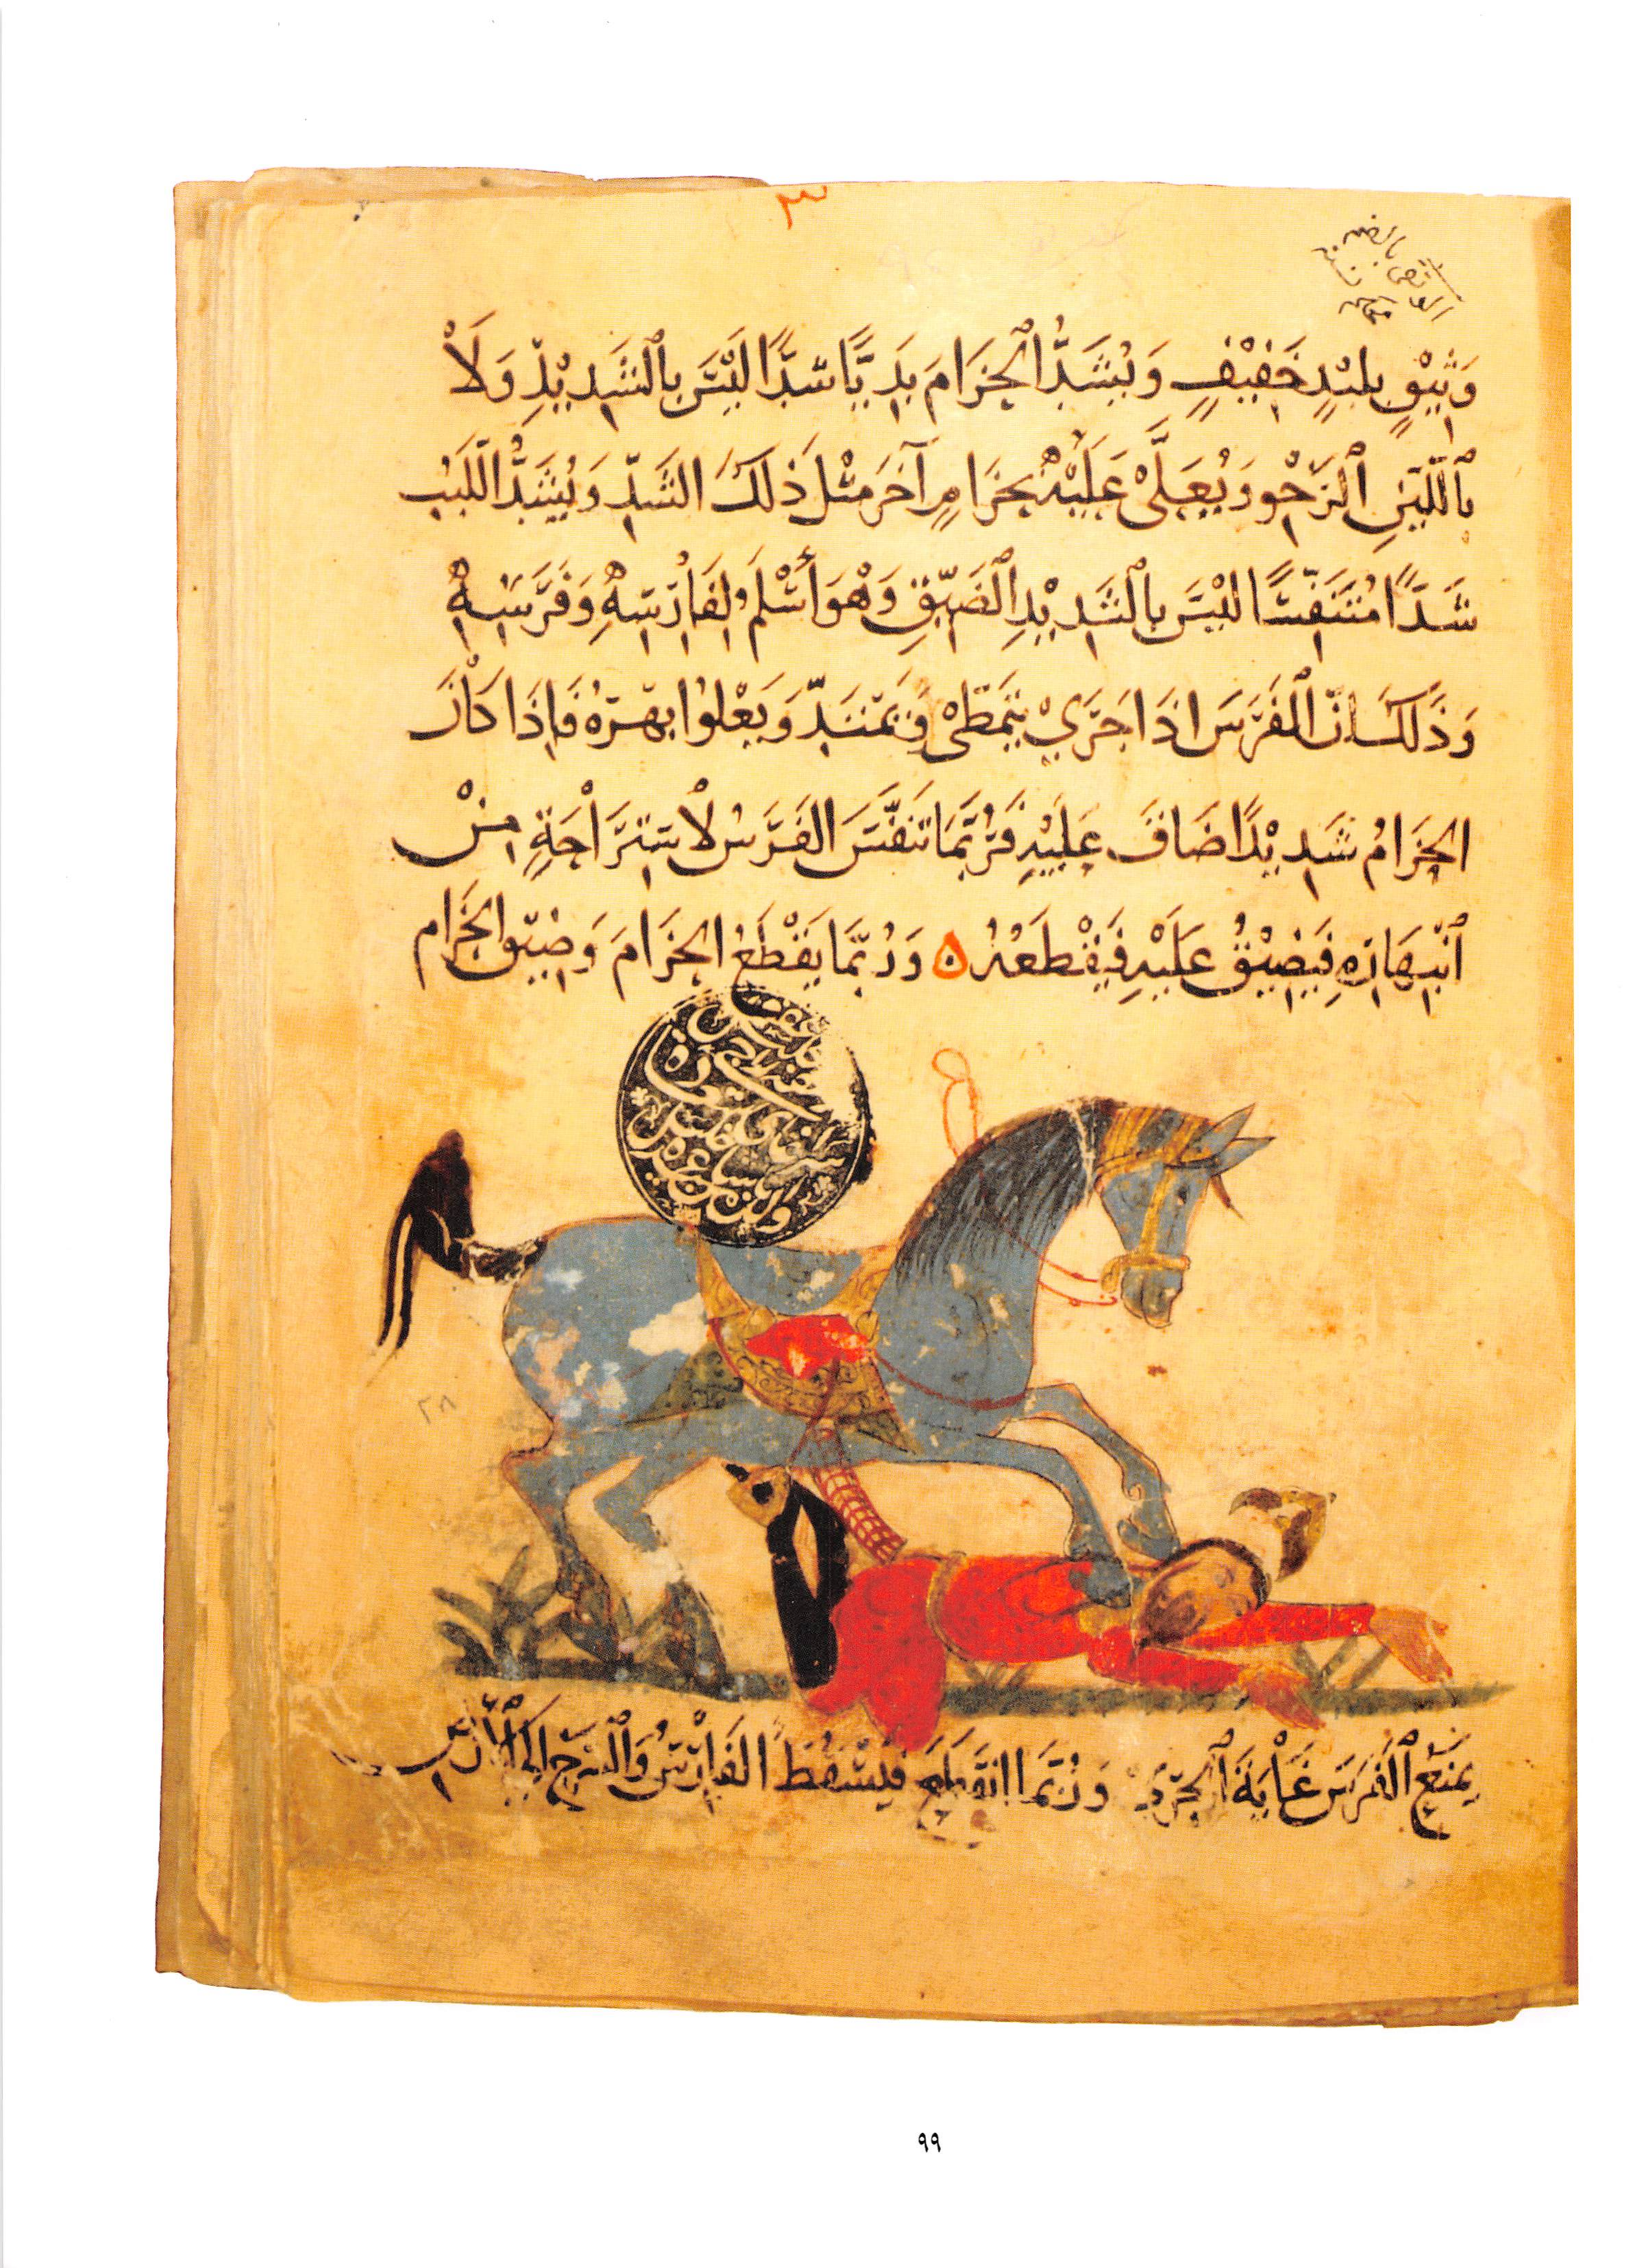 ٣
وَثِيْقٍ بلبْدٍ خَفِيْفٍ وَيُشَدُّ الْحِزَامَ بَدِيَّا شدًّا لَيْسَ بِالْشَدِيْدِ وَلَاْ
بِاللَّيِنِ الْرَخْوِ وَيُعَلَّىْ عَلَيْهْ بحِزَامٍ آخَرَ مثْل ذَلكَ الشَدِّ وَيُشَدُّ اللَّبَبُ
شَدًّا مُتَنَفِّسًّا ليْسَ بِالْشَدِيْدِ الْضَيِّقِ وَهْوَ أَسْلَمُ لِفَاْرِسِهِ وَفَرَسِهْ
وَذَلكَ انَّ الْفَرَسَ اذَا جَرَيْ يتَمَطَّى وَيَمْتَدّ وَيَعْلُوا بهرهُ فَاِذَا كَاْنَ
الحزَامُ شَدِيْدًا ضَاقَ عَلَيْهِ فَرُبَّمَا تَنَفَّسَ الفَرَسُ لاْسِترَاْحَةٍ مِنْ
اْنْبِهَارِهِ فَيَضِيْقُ عَلَيْهِ فَيَقْطَعُهُ ه وَرُبَّمَا يَقْطَعُ الحِزَامَ وَضِيْق الحِزَام
٢٨
يمنَعُ الْفَرَسَ غَاْيَةَ الْجَرْيِ وَرُبَّمَا انقَطَعَ فيَسْقُط الفَاِرْسُ وَالْسَرجُ اِلَى الْأَرْض
٩٩